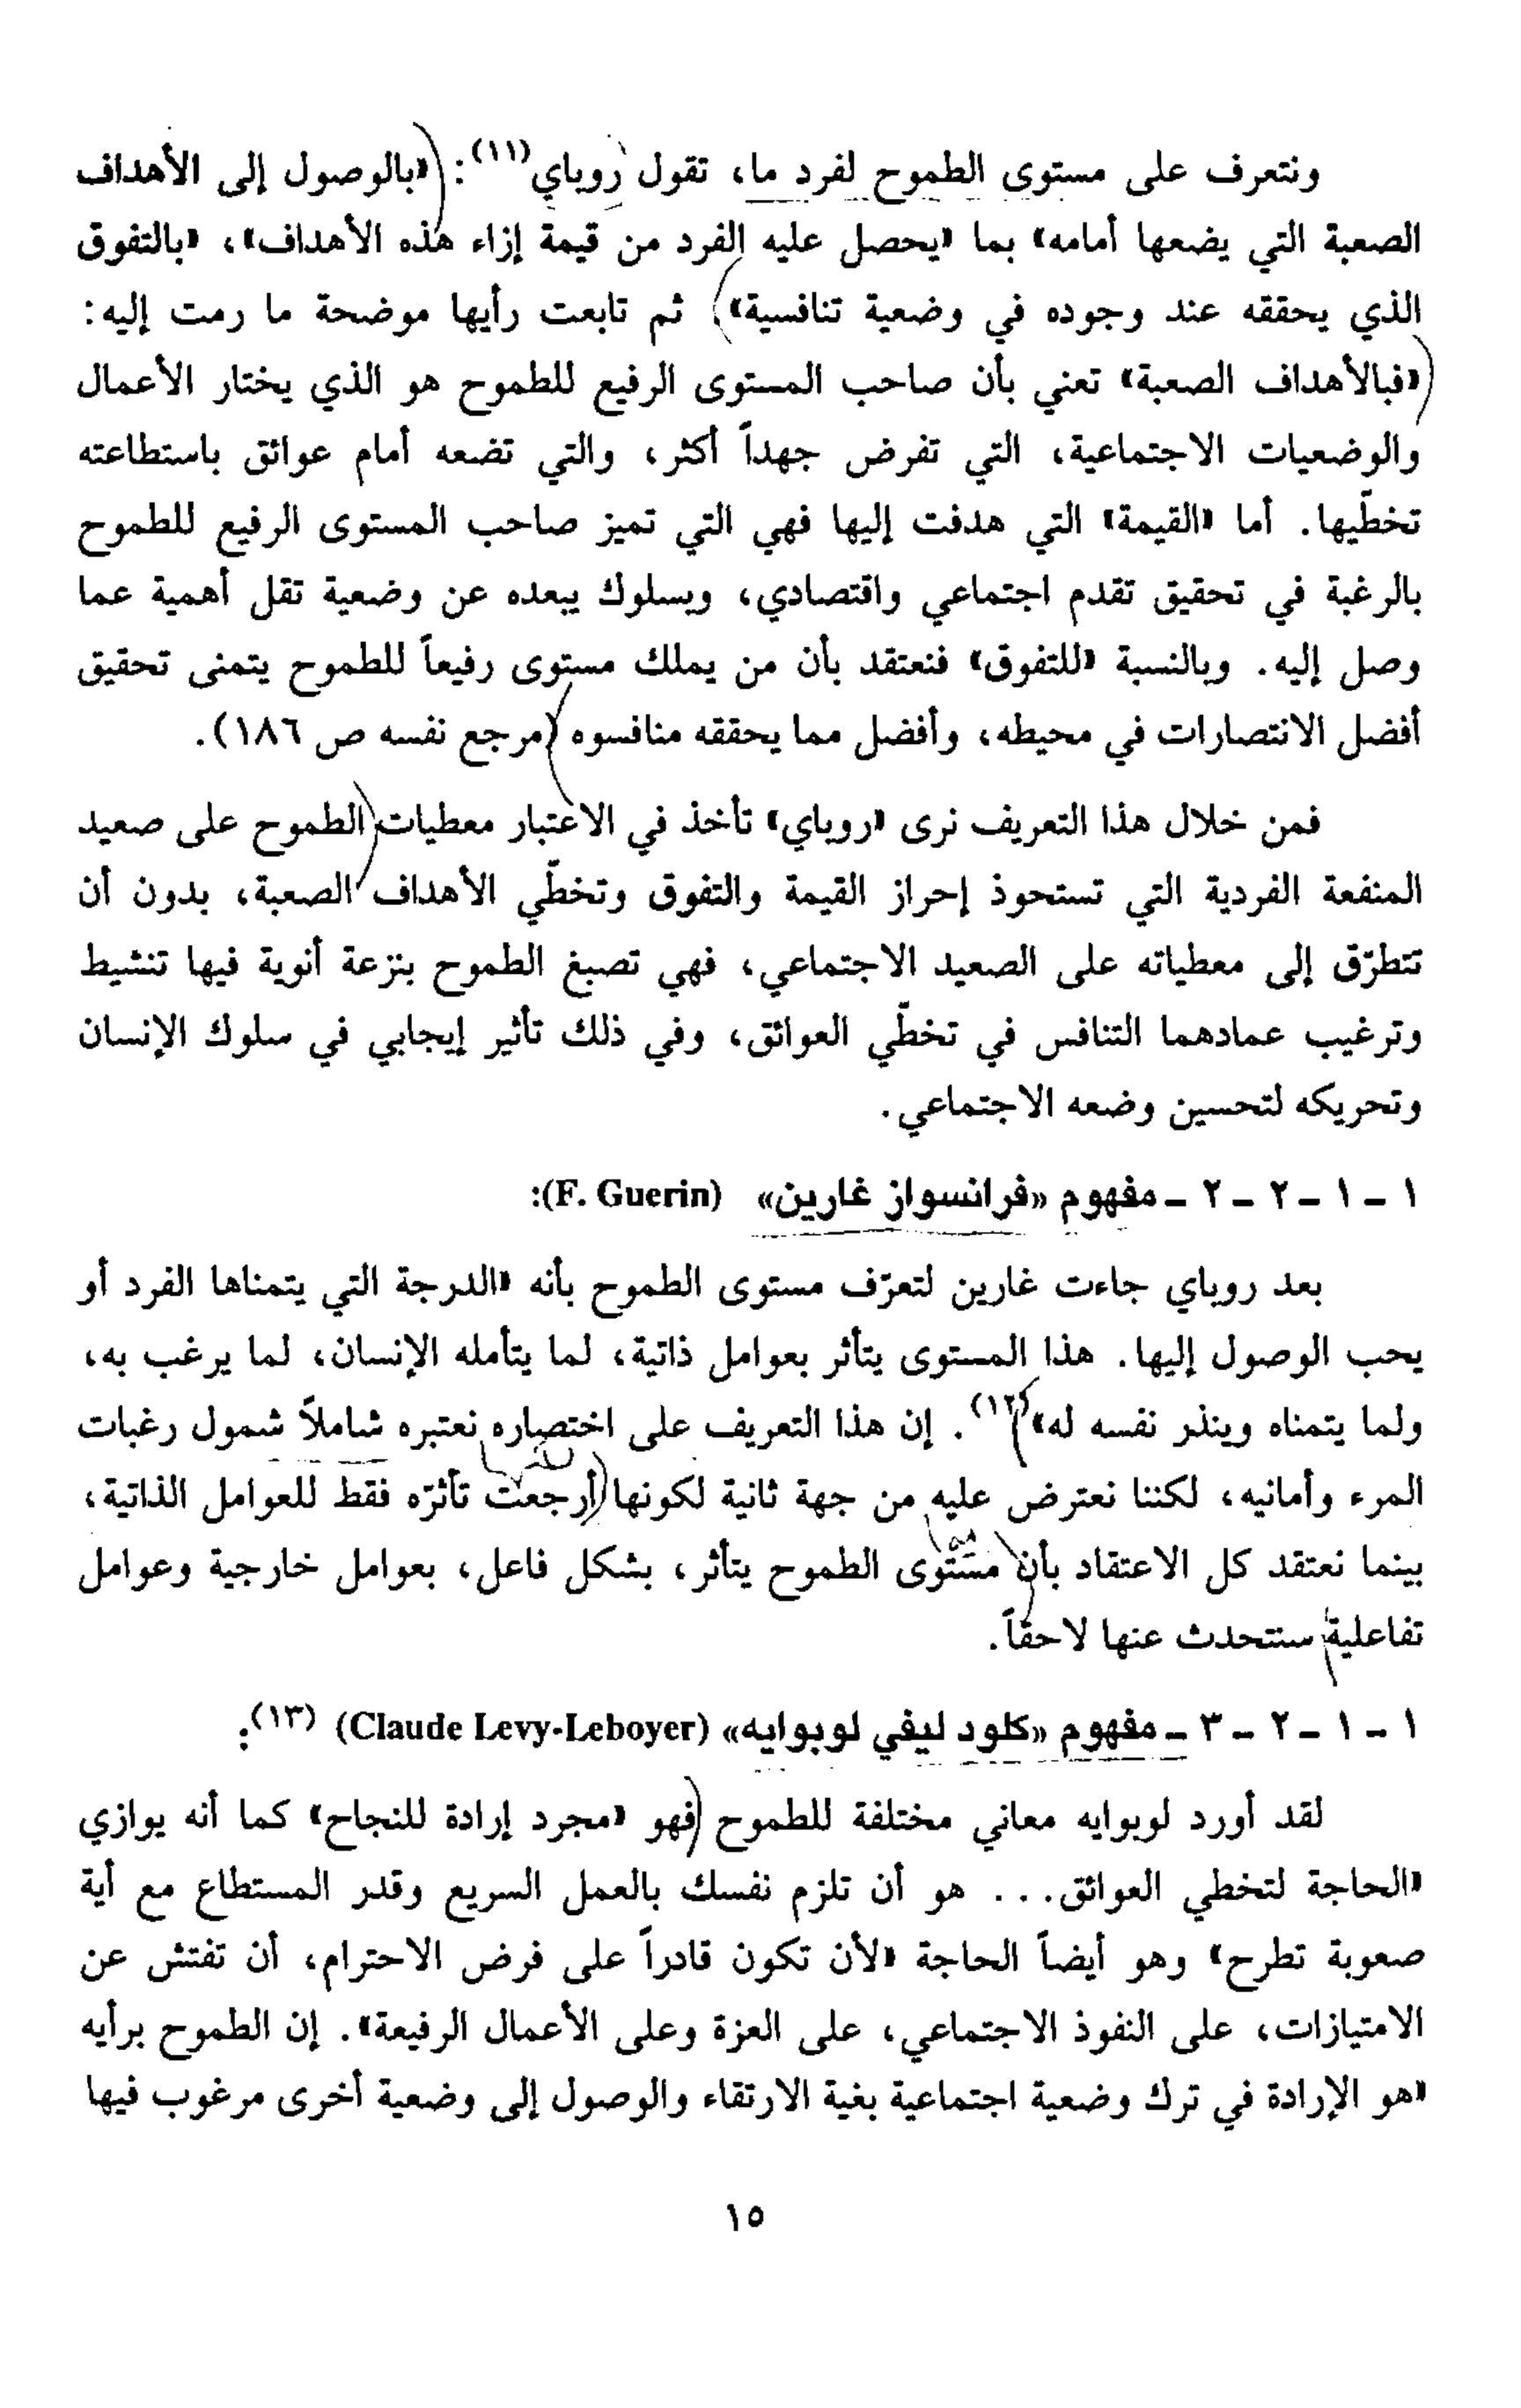 ونتعرف على مستوى الطموح لفرد ما، تقول روباي(١١): «بالوصول إلى الأهداف
الصعبة التي يضعها أمامه» بما «يحصل عليه الفرد من قيمة إزاء هذه الأهداف»، «بالتفوق
الذي يحققه عند وجوده في وضعية تنافسية» ثم تابعت رأيها موضحة ما رمت إليه:
«فبالأهداف الصعبة» تعني بأن صاحب المستوى الرفيع للطموح هو الذي يختار الأعمال
والوضعيات الاجتماعية، التي تفرض جهداً أكثر، والتي تضعه أمام عوائق باستطاعته
تخطّيها. أما «القيمة» التي هدفت إليها فهي التي تميز صاحب المستوى الرفيع للطموح
بالرغبة في تحقيق تقدم اجتماعي واقتصادي، وبسلوك يبعده عن وضعية تقل أهمية عما
وصل إليه. وبالنسبة «للتفوق» فنعتقد بأن من يملك مستوى رفيعاً للطموح يتمنى تحقيق
أفضل الانتصارات في محيطه، وأفضل مما يحققه منافسوه (مرجع نفسه ص ١٨٦).
فمن خلال هذا التعريف نرى «روباي» تأخذ في الاعتبار معطيات الطموح على صعيد
المنفعة الفردية التي تستحوذ إحراز القيمة والتفوق وتخطّي الأهداف الصعبة، بدون أن
تتطرّق إلى معطياته على الصعيد الاجتماعي، فهي تصبغ الطموح بنزعة أنوية فيها تنشيط
وترغيب عمادهما التنافس في تخطّي العوائق، وفي ذلك تأثير إيجابي في سلوك الإنسان
وتحريكه لتحسين وضعه الاجتماعي.
١ - ١ - ٢ - ٢ - مفهوم «فرانسواز غارين» (F. Guerin):
بعد روباي جاءت غارين لتعرّف مستوى الطموح بأنه «الدرجة التي يتمناها الفرد أو
يحب الوصول إليها. هذا المستوى يتأثر بعوامل ذاتية، لما يتأمله الإنسان، لما يرغب به،
ولما يتمناه وينذر نفسه له»(١٢). إن هذا التعريف على اختصاره نعتبره شاملاً شمول رغبات
المرء وأمانيه، لكننا نعترض عليه من جهة ثانية لكونها أرجعت تأثرّه فقط للعوامل الذاتية،
بينما نعتقد كل الاعتقاد بأن مستوى الطموح يتأثر، بشكل فاعل، بعوامل خارجية وعوامل
تفاعلية سنتحدث عنها لاحقاً.
١ - ١ - ٢ - ٣ - مفهوم «كلود ليفي لوبوايه» (Claude Levy-Leboyer) (١٣):
لقد أورد لوبوايه معاني مختلفة للطموح فهو «مجرد إرادة للنجاح» كما أنه يوازي
«الحاجة لتخطي العوائق... هو أن تلزم نفسك بالعمل السريع وقدر المستطاع مع أية
صعوبة تطرح» وهو أيضاً الحاجة «لأن تكون قادراً على فرض الاحترام، أن تفتش عن
الامتيازات، على النفوذ الاجتماعي، على العزة وعلى الأعمال الرفيعة». إن الطموح برأيه
«هو الإرادة في ترك وضعية اجتماعية بغية الارتقاء والوصول إلى وضعية أخرى مرغوب فيها
١٥